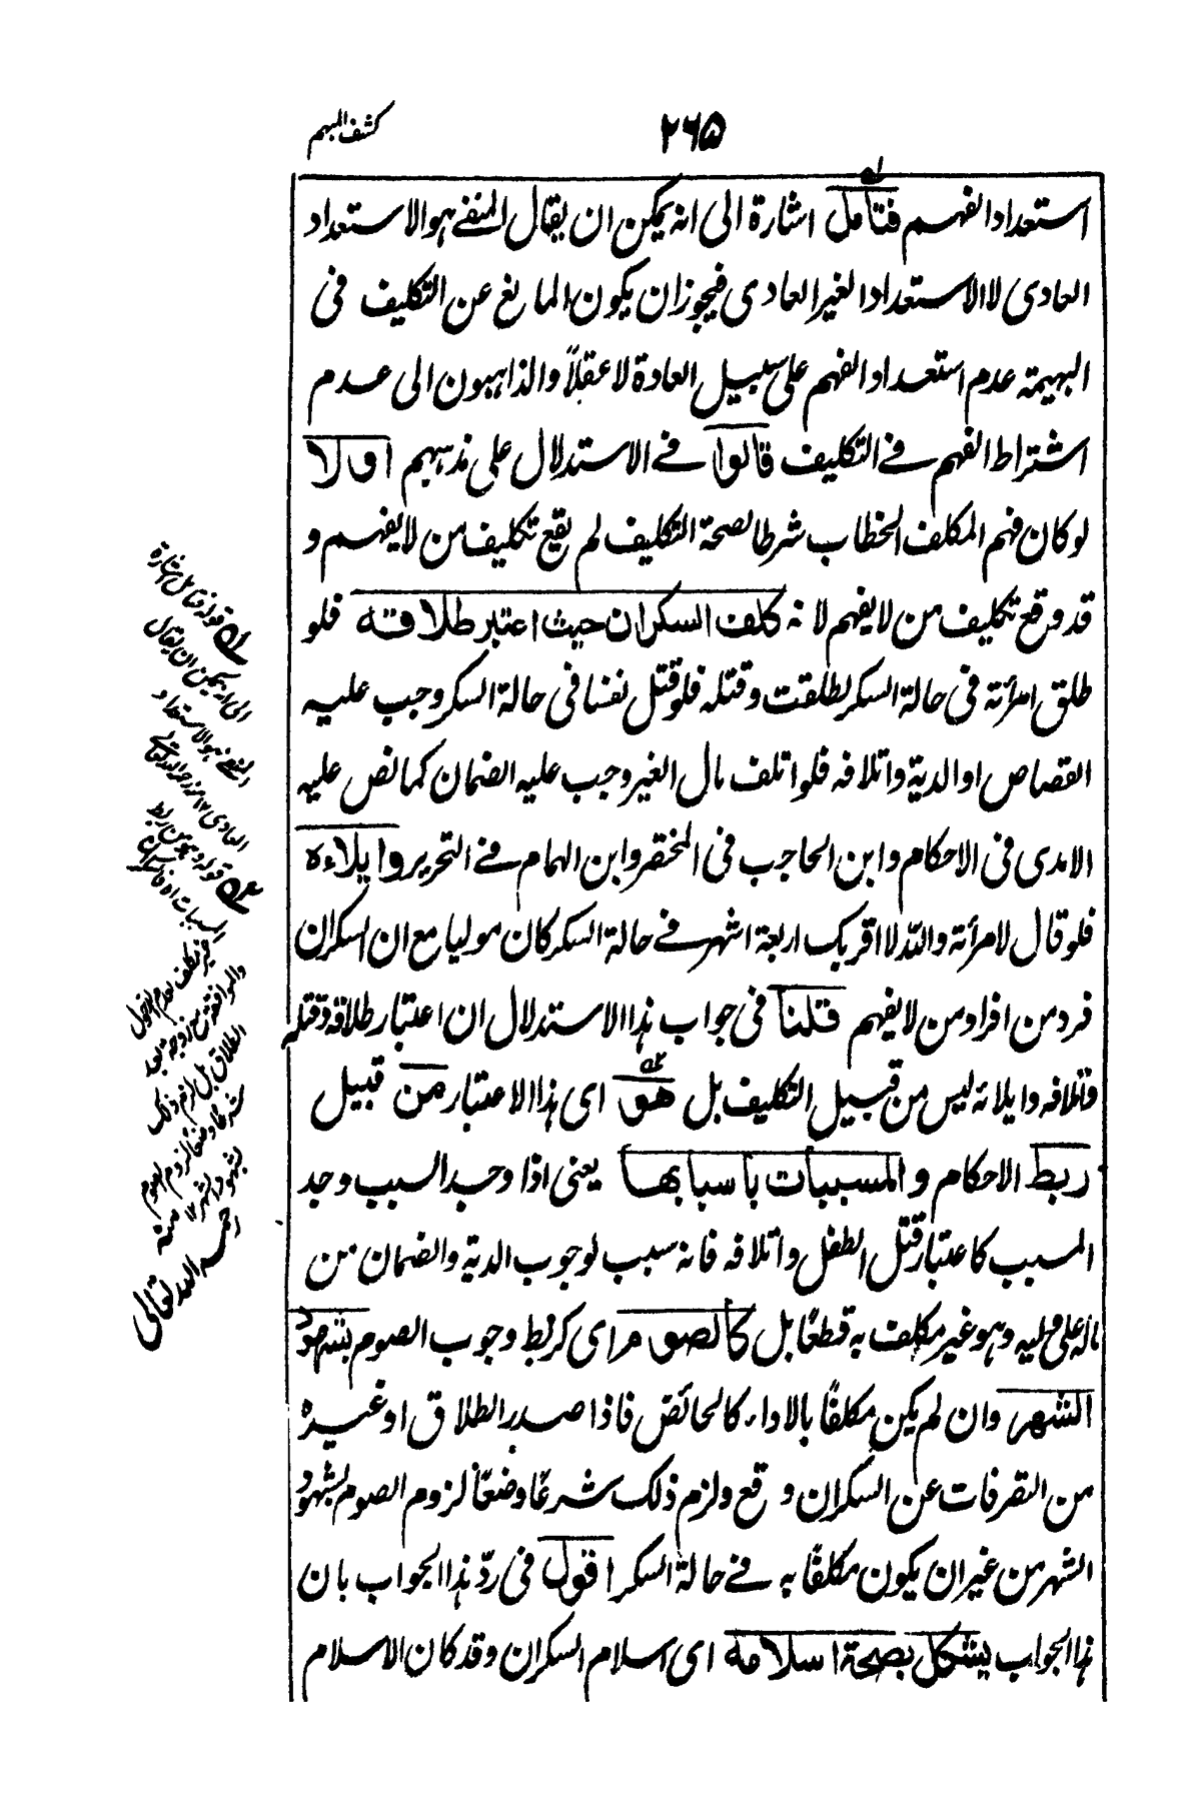 ۲۶۵
كشف المبهم
استعداد الفهم فتامل اشارة الى انه يمكن ان يقال المنفي هو الاستعداد
العادى لا الاستعداد الغير العادى فيجوز ان يكون المانع عن التكليف فى
البهيمة عدم استعداد الفهم على سبيل العادة لا عقلاً والذاهبون الى عدم
اشتراط الفهم في التكليف قالوا في الاستدلال على مذهبهم اولا
لو كان فهم المكلف الخطاب شرطا لصحة التكليف لم يقع تكليف من لا يفهم و
قد وقع تكليف من لا يفهم لانه كلف السكران حيث اعتبر طلاقه فلو
طلق امرأته فى حالة السكر لطلقت وقتله فلو قتل نفسا فى حالة السكر وجب عليه
القصاص او الدية واتلافه فلو اتلف مال الغير وجب عليه الضمان كما نص عليه
الامدى فى الاحكام وابن الحاجب فى المختصر وابن الهمام في التحرير وايلاءه
فلو قال لامرأته والله لا اقربك اربعة اشهر في حالة السكر كان موليا مع ان السكران
فرد من افراد من لا يفهم قلنا فى جواب هذا الاستدلال ان اعتبار طلاقه وقتله
واتلافه وايلائه ليس من قبيل التكليف بل هو اى هذا الاعتبار من قبيل
ربط الاحكام و المسببات باسبابها يعنى اذا وجد السبب وجد
المسبب كاعتبار قتل الطفل واتلافه فانه سبب لوجوب الدية والضمان من
ماله على وليه وهو غير مكلف به قطعًا بل كالصوم اى كربط وجوب الصوم بشهود
الشهر وان لم يكن مكلفًا بالاداء كالحائض فاذا صدر الطلاق او غيره
من التصرفات عن السكران وقع ولزم ذلك شرعًا وضعًا لزوم الصوم لشهود
الشهر من غير ان يكون مكلفًا به في حالة السكر اقول فى ردّ هذا الجواب بان
هذا الجواب يشكل بصحة اسلامه اى اسلام السكران وقد كان الاسلام
قوله فتامل اشارة
الى انه يمكن ان يقال
المنفي هو الاستعداد
قوله هو من ربط
رحمه الله تعالى